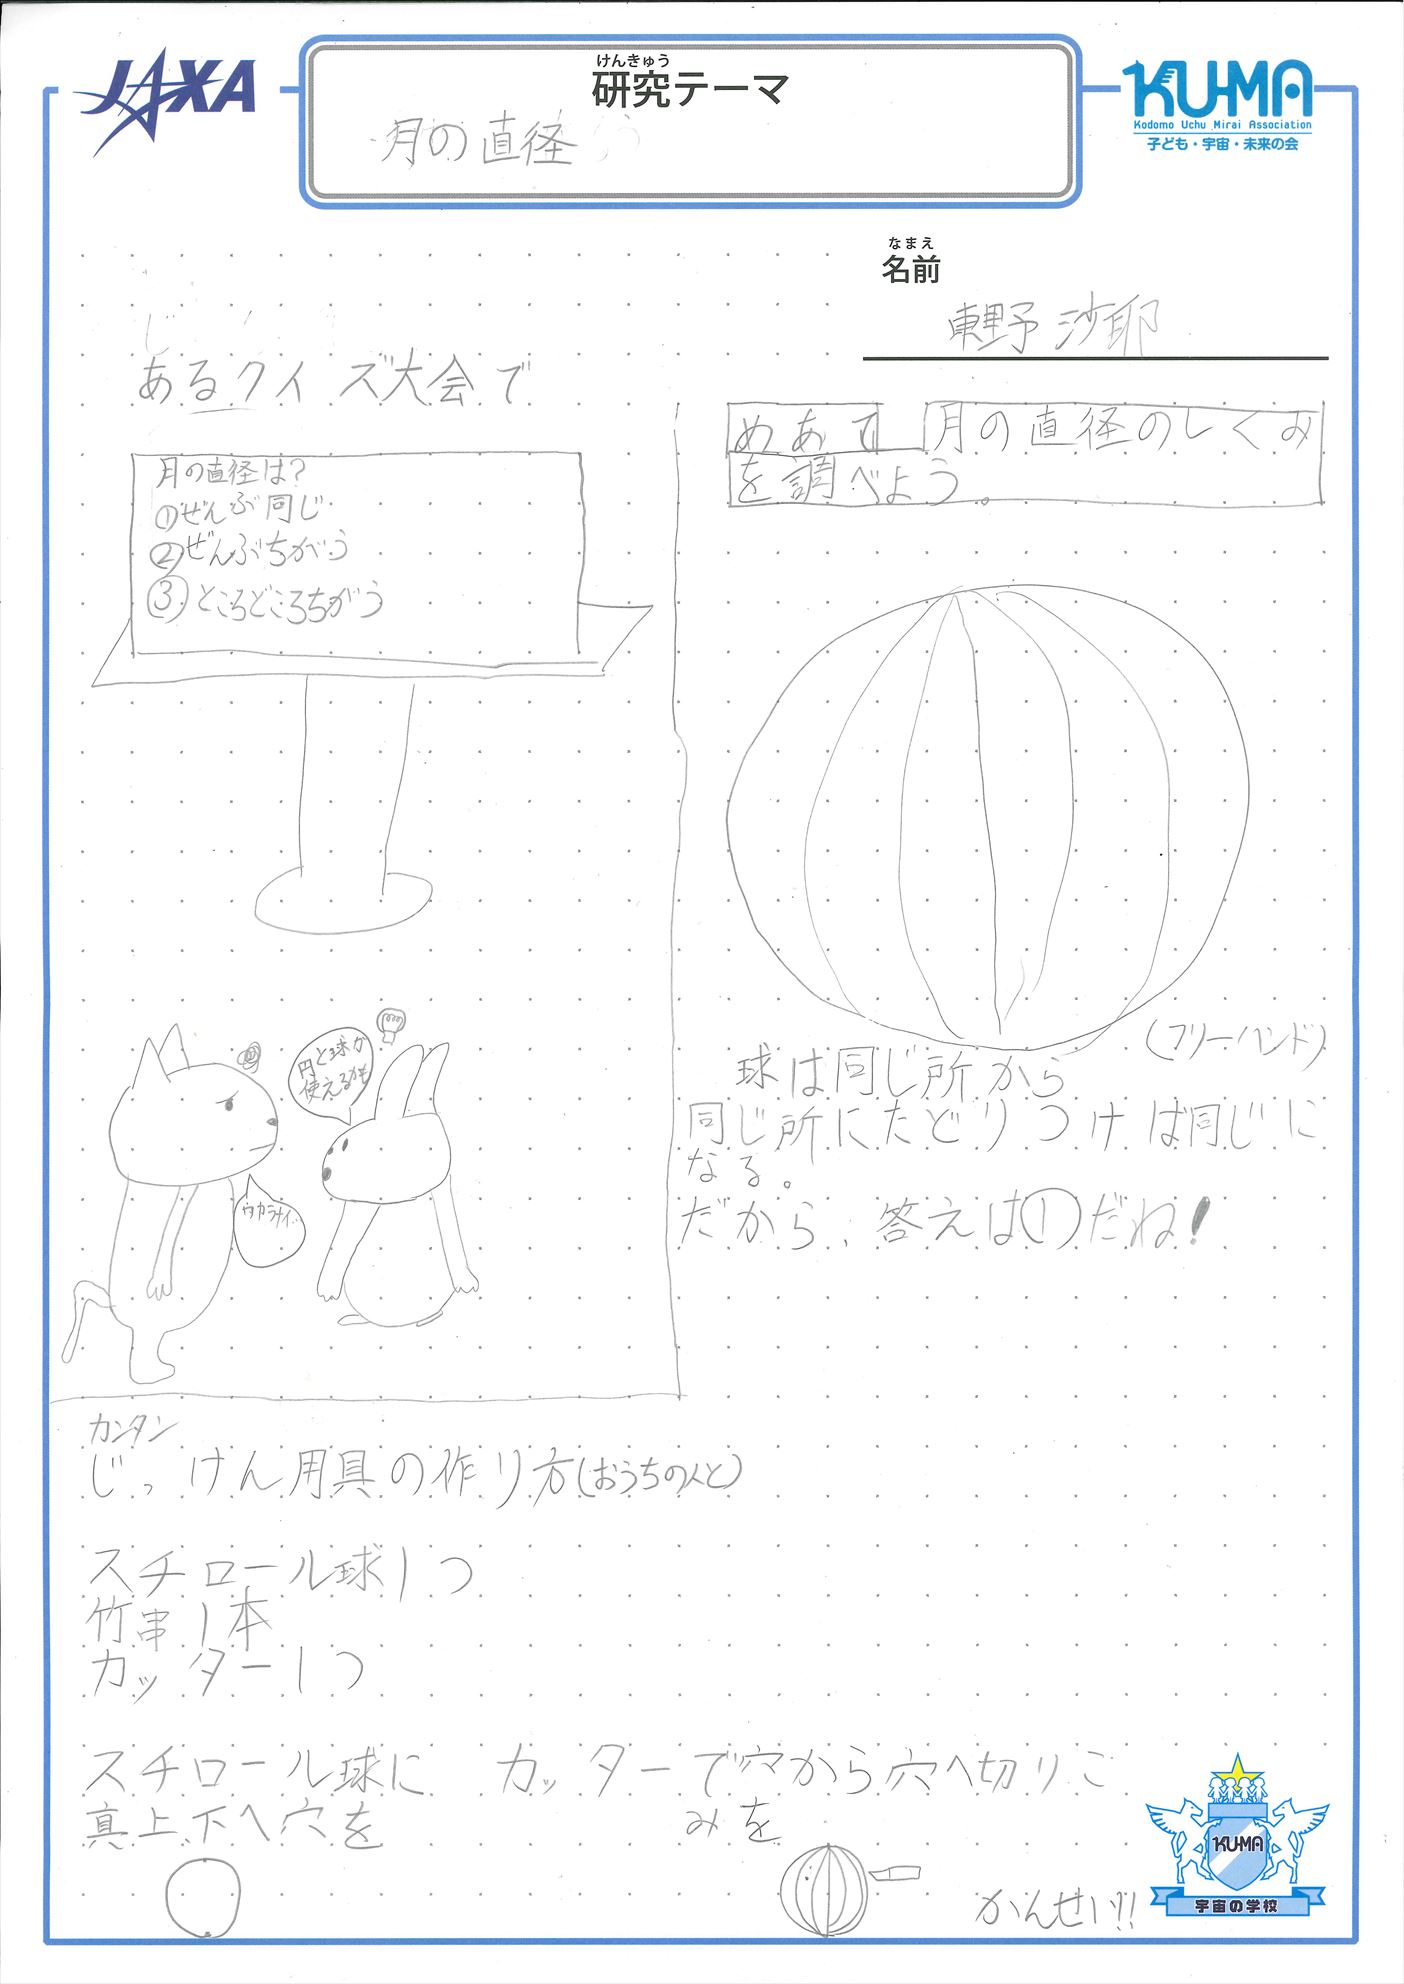 JAXA
けんきゅう
研究テーマ
月の直径
KU-MA
Kodomo Uchu Mirai Association
子ども・宇宙・未来の会
なまえ
名前
東野 沙耶
あるクイズ大会で
月の直径は?
①ぜんぶ同じ
②ぜんぶちがう
③ところどころちがう
円と球が
使えるかも
ワカラナイ…
めあて 月の直径のしくみ
を調べよう。
(フリーハンド)
球は同じ所から
同じ所にたどりつけば同じに
なる。
だから、答えは①だね!
カンタン
じっけん用具の作り方(おうちの人と)
スチロール球1つ
竹串1本
カッター1つ
スチロール球に
真上下へ穴を
カッターで穴から穴へ切りこ
みを
かんせい!!
KU-MA
宇宙の学校